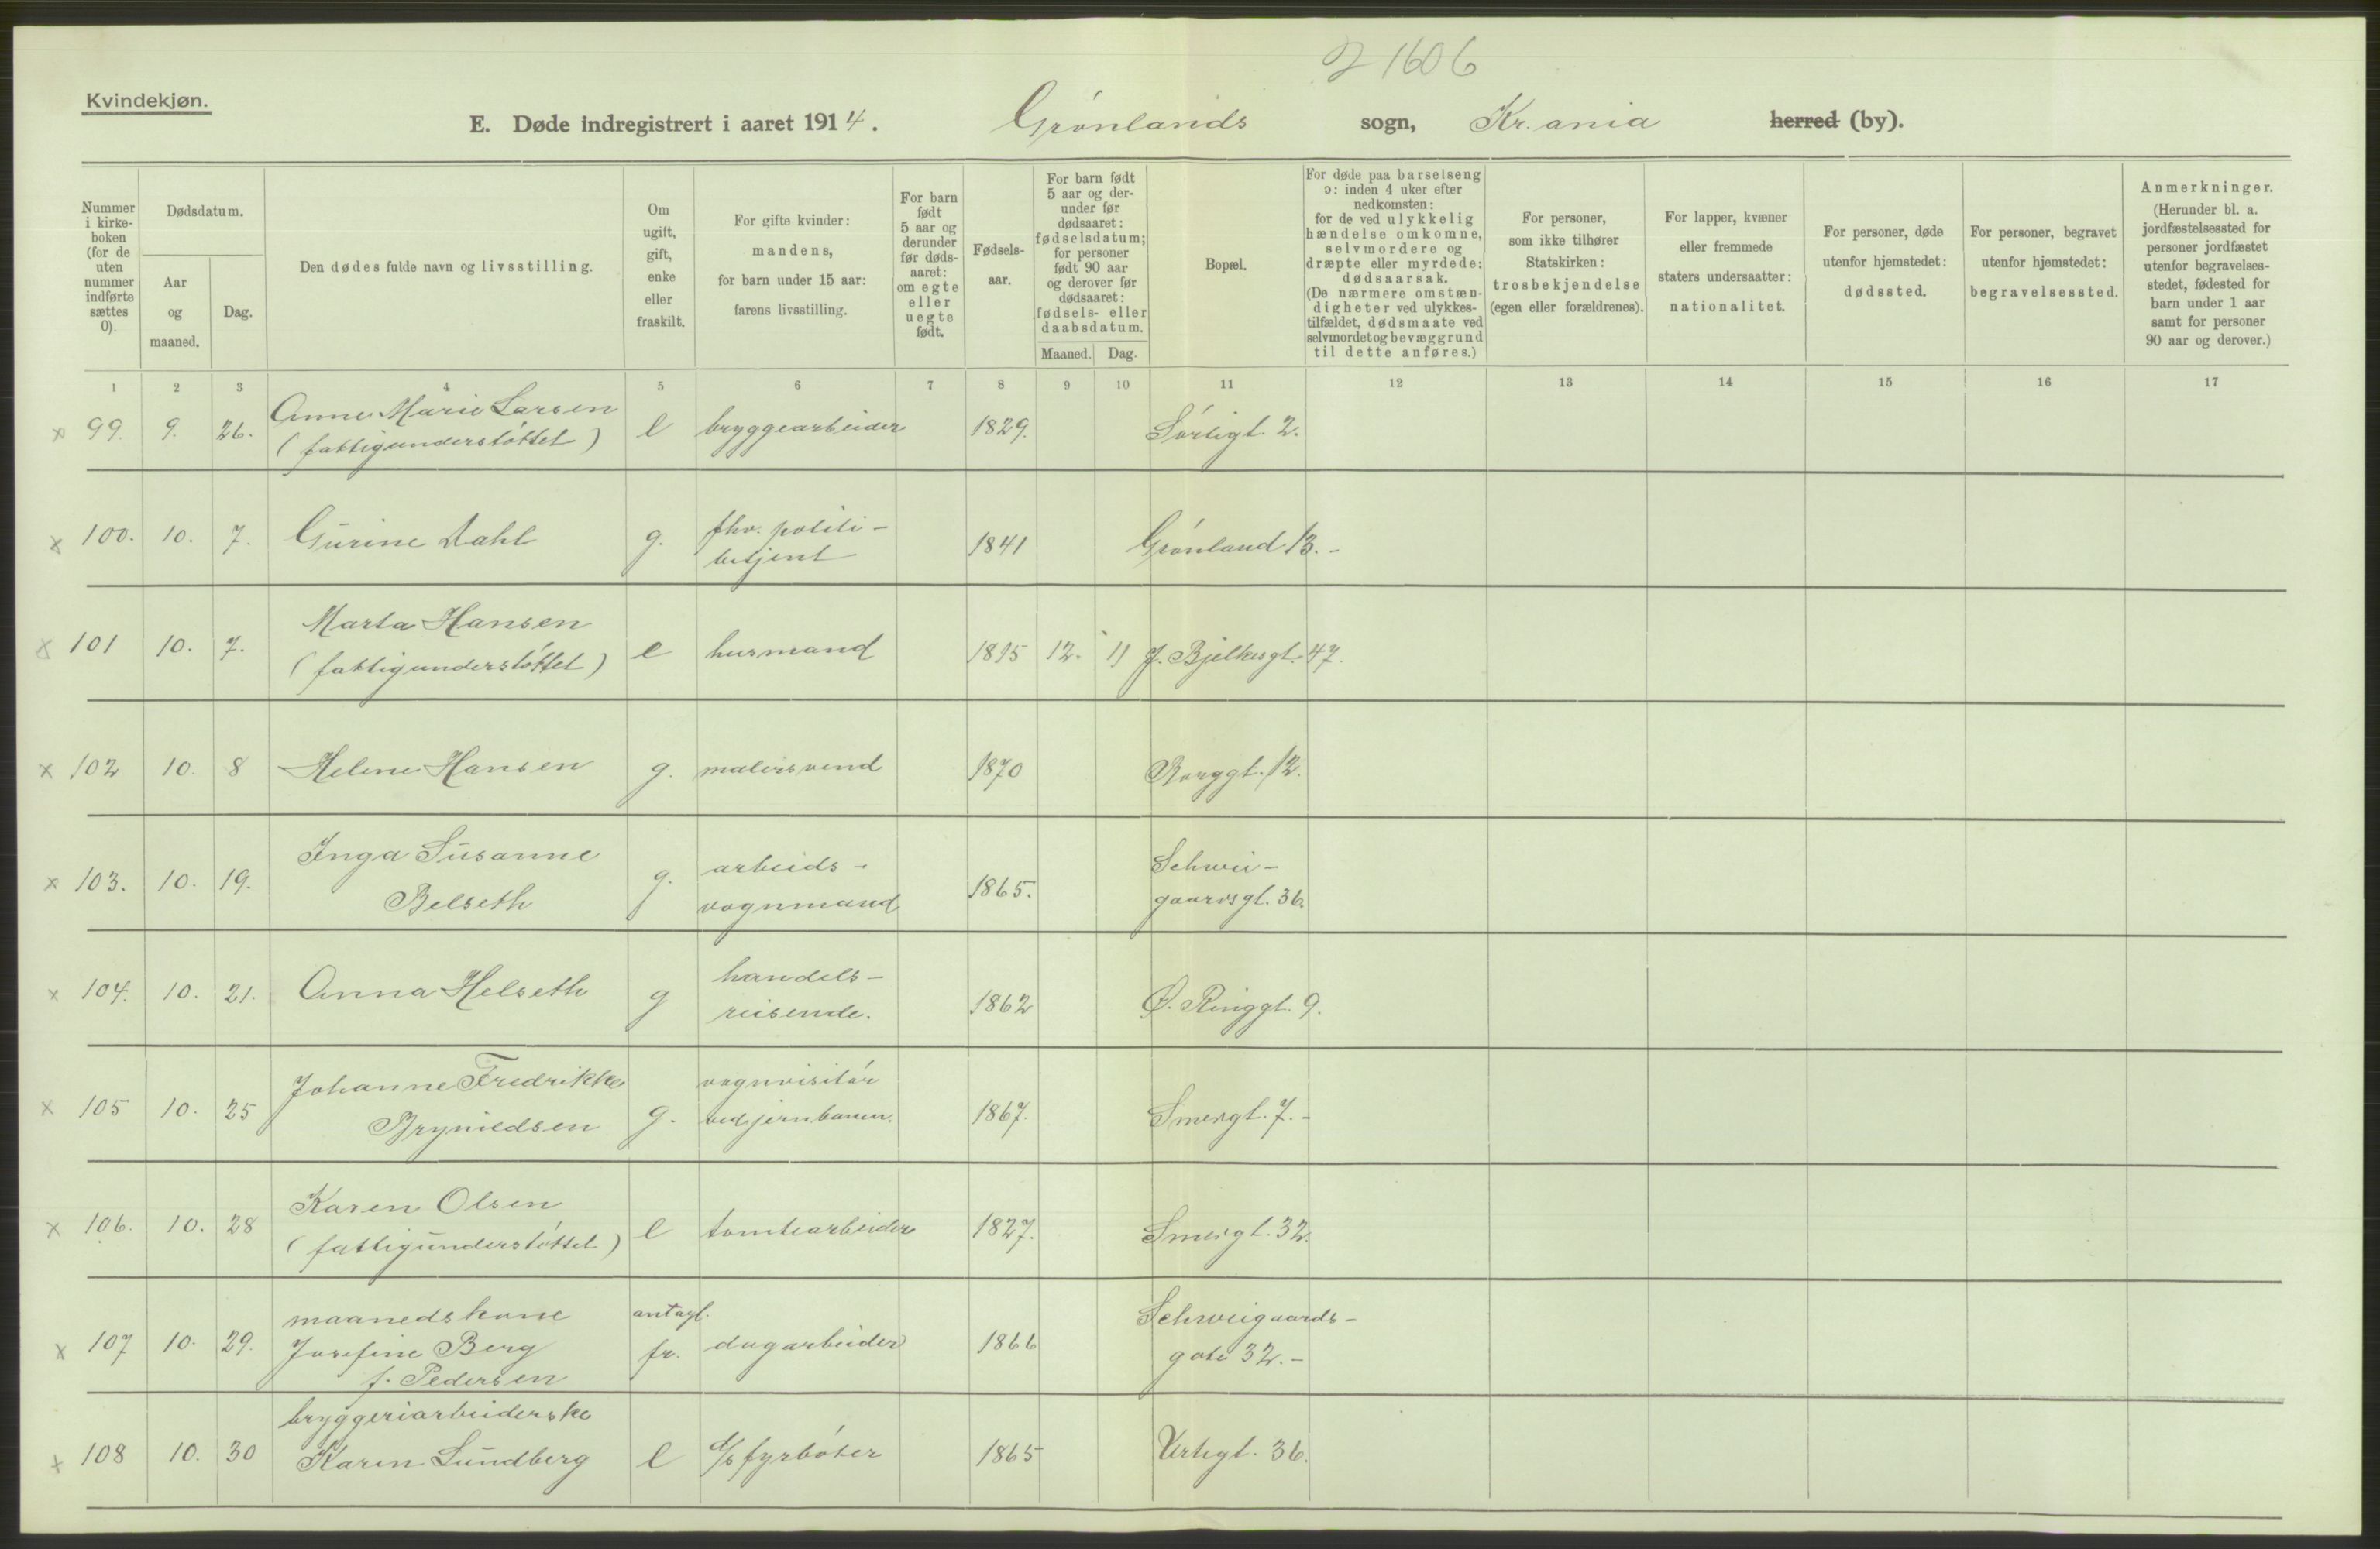 2 1606
Kvindekjøn.
E. Døde indregistrert i aaret 1914. Grønlands sogn, Kr.ania herred (by).
Nummer i kirke-boken (for de uten nummer indførte sættes 0).
Dødsdatum.
Aar og maaned.
Dag.
Den dødes fulde navn og livsstilling.
Om ugift, gift, enke eller fraskilt.
For gifte kvinder: mandens, for barn under 15 aar: farens livsstilling.
For barn født 5 aar og derunder før døds-aaret: om egte eller uegte født.
Fødsels-aar.
For barn født 5 aar og der-under før dødsaaret: fødselsdatum; for personer født 90 aar og derover før dødsaaret: fødsels- eller daabsdatum.
Maaned. Dag.
Bopæl.
For døde paa barselseng ɔ: inden 4 uker efter nedkomsten: for de ved ulykkelig hændelse omkomne, selvmordere og dræpte eller myrdede: dødsaarsak. (De nærmere omstæn-digheter ved ulykkes-tilfældet, dødsmaate ved selvmordet og bevæggrund til dette anføres.)
For personer, som ikke tilhører Statskirken: trosbekjendelse (egen eller forældrenes).
For lapper, kvæner eller fremmede staters undersaatter: nationalitet.
For personer, døde utenfor hjemstedet: dødssted.
For personer, begravet utenfor hjemstedet: begravelsessted.
Anmerkninger. (Herunder bl. a. jordfæstelsessted for personer jordfæstet utenfor begravelses-stedet, fødested for barn under 1 aar samt for personer 90 aar og derover.)
1 2 3 4 5 6 7 8 9 10 11 12 13 14 15 16 17
x 99. 9. 26. Anne Marie Larsen e bryggearbeider 1829. Sørligt. 2.
(fattigunderstøttet)
x 100. 10. 7. Gurine Dahl g. fhv. politi-
betjent 1841 Grønland 13.-
x 101 10. 7. Marta Hansen e husmand 1815 12. 11 J. Bjelkesgt. 47.
(fattigunderstøttet)
x 102 10. 8 Helene Hansen g. malersvend 1870 Borggt. 12.
x 103. 10. 19. Inga Susanne g. arbeids-
Belseth vognmand 1865. Schwei-
gaardsgt. 36.
x 104. 10. 21. Anna Helseth g handels-
reisende. 1862 Ø. Ringgt. 9.
x 105 10. 25 Johanne Fredrikke g. vognvisitør
Brynildsen ved jernbanen. 1867. Smedgt. 7.-
x 106. 10. 28 Karen Olsen e tomtearbeider 1827. Smedgt. 32.
(fattigunderstøttet)
x 107 10. 29. maanedskone antagl.
Josefine Berg fr. dagarbeider 1866 Schweigaards-
f. Pedersen gate 32.-
x 108 10. 30 bryggeriarbeiderske
Karen Lundberg e d/s fyrbøter 1865 Urtegt. 36.